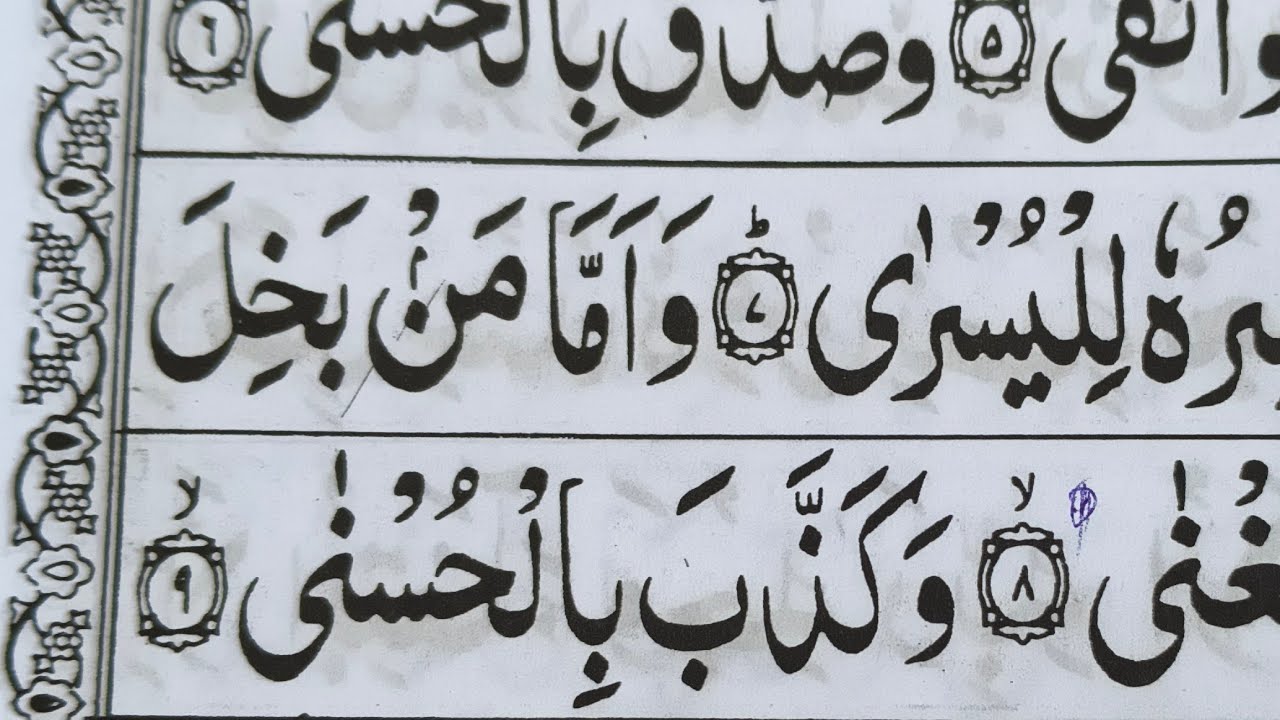 وَاتَّقٰى ۝٥ وَصَدَّقَ بِالْحُسْنٰى ۝٦
سِّرُهٗ لِلْيُسْرٰى ۝٧ؕ وَاَمَّا مَنْۢ بَخِلَ
غْنٰى ۝٨ۙ وَكَذَّبَ بِالْحُسْنٰى ۝٩ۙ